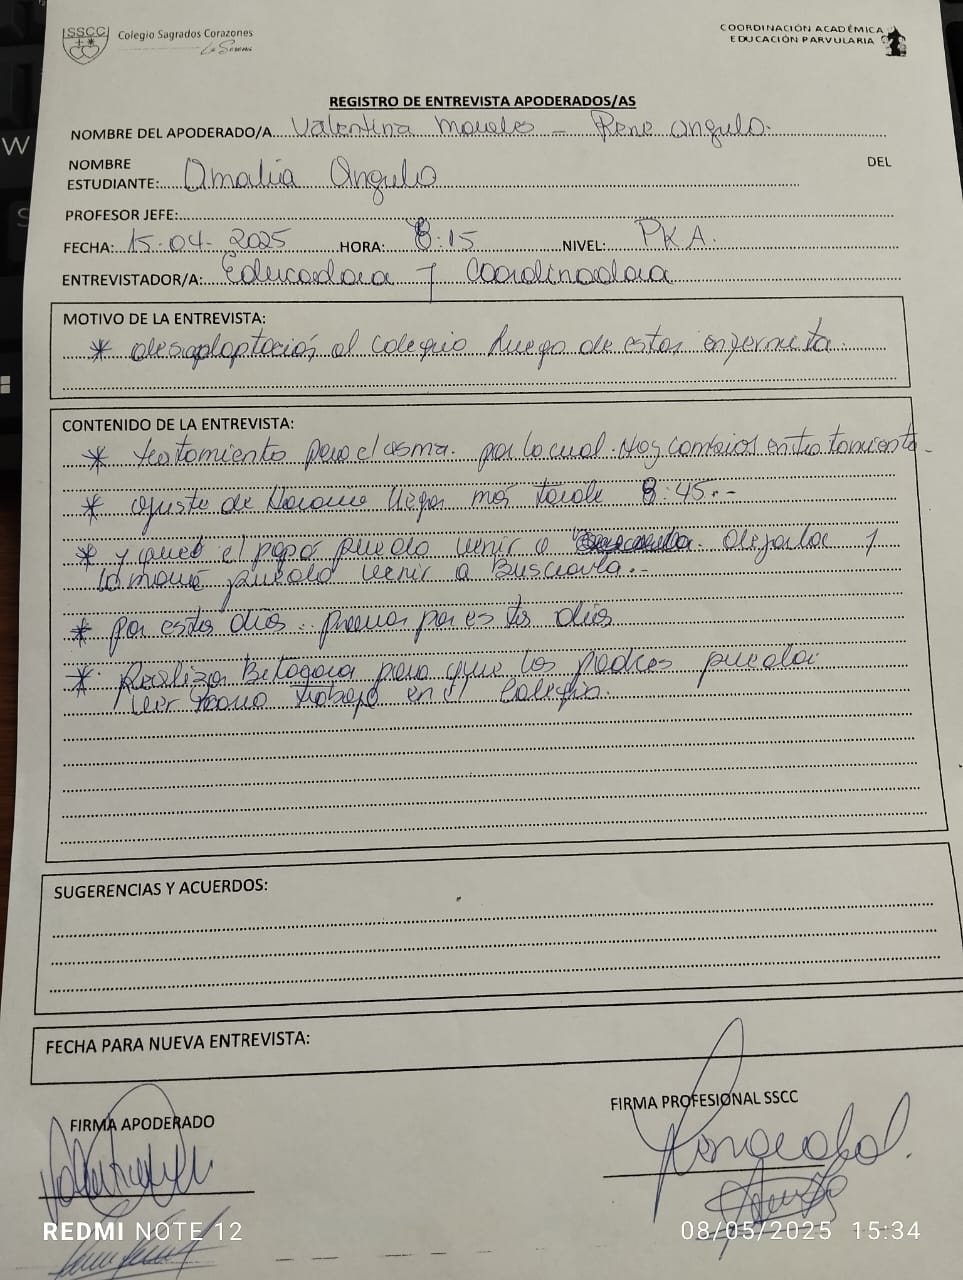 SSCC
Colegio Sagrados Corazones
La Serena
COORDINACIÓN ACADÉMICA
EDUCACIÓN PARVULARIA
REGISTRO DE ENTREVISTA APODERADOS/AS
NOMBRE DEL APODERADO/A Valentina Morales - Rene Angulo.
NOMBRE DEL
ESTUDIANTE: Amalia Angulo
PROFESOR JEFE:
FECHA: 15-04-2025 HORA: 8:15 NIVEL: PKA.
ENTREVISTADOR/A: Educadora y Coordinadora
MOTIVO DE LA ENTREVISTA:
* desadaptación al colegio luego de estar enfermita.
CONTENIDO DE LA ENTREVISTA:
* tratamiento para el asma. por lo cual. Hay cambios en tratamiento.
* ajuste de Horario llegar más tarde 8:45.-
* y que el papá pueda venir a dejarla y
la mamá pueda venir a Buscarla.-
* por estos días. por estos días
* Realizar Bitácora para que los padres puedan
leer trabajo en el Colegio.
SUGERENCIAS Y ACUERDOS:
FECHA PARA NUEVA ENTREVISTA:
FIRMA APODERADO
FIRMA PROFESIONAL SSCC
REDMI NOTE 12
08/05/2025 15:34
W
S